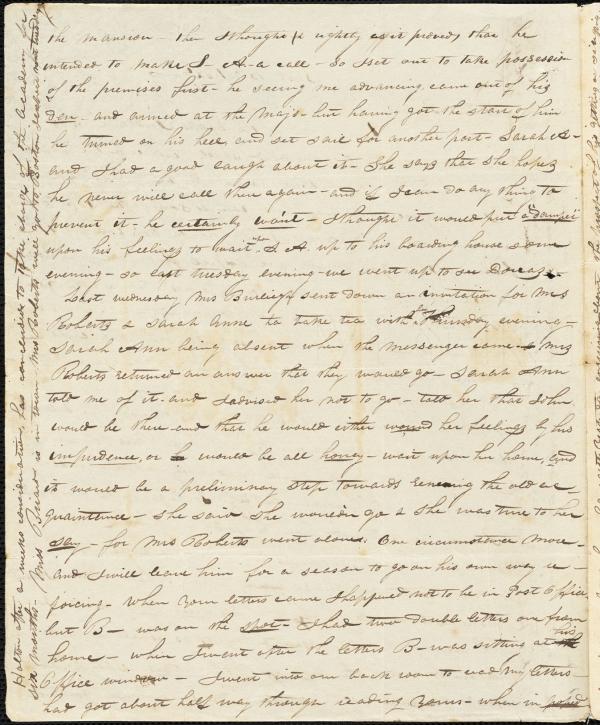 the mansion - then I thought & rightly as it proved that he
intended to make S- A- a call - so I set out to take possession
of the premises first - he seeing me advancing came out of his
den - and arrived at the Majr - but having got the start of him
he turned on his heel and set sail for another port - Sarah A-
and I had a good laugh about it - She says that she hopes
he never will call there again - and if I can do any thing to
prevent it - he certainly won't - I thought it would put a damper
upon his feelings to wait upon S. A. up to his boarding house some
evening - so last tuesday evening - we went up to see
Last wednesday Mrs Burleigh sent down an invitation for Mrs
Roberts & Sarah Anne to take tea with Thursday evening -
Sarah Ann being absent when the messenger came - Mrs
Roberts returned an answer that they would go - Sarah Ann
told me of it - and I advised her not to go - told her that John
would be there - and that he would either wound her feelings by his
impudence, or would be all honey - wait upon her home, and
it would be a preliminary step towards renewing the old ac-
quaintance - she said she wouldn go & she was true to her
say - for Mrs Roberts went alone. One circumstance more -
and I will leave him for a season to go on his own way re-
joicing - When your letters came I happened not to be in Post Office
but B- was on the spot - I had two double letters one from
home - when I went after the letters B- was sitting at his
Office window - I went into our back room to read my letters -
had got about half way through reading yours - when in
Holton after a weeks consideration, has concluded to take charge of the Academy for
six months. Miss Briard is in town. Mrs Roberts will go to Boston